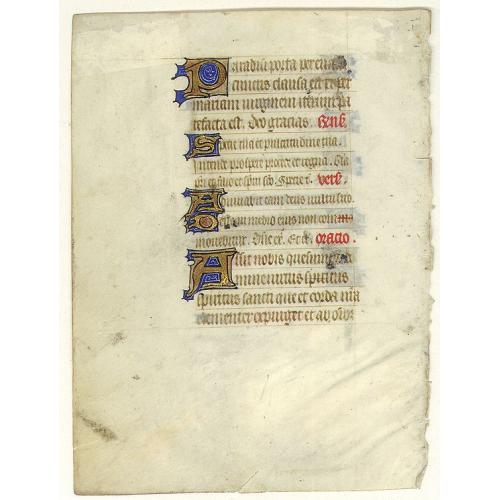 Paradisi porta per euam
cunctis clausa est et per
mariam uirginem iterum pa
tefacta est. Deo gracias.
Specie tua et pulcritudine tua.
Intende prospere procede et regna. Gla
pri et filio et spiri sco. Specie t. vers.
Adiuuabit eam deus uultu suo
Deus in medio eius non com
mouebitur. Dne ex. Et cl. oracio.
Assit nobis quesumus
dmne uirtus spiritus
spiritus sancti que et corda nra
clementer expurget et ab oibz